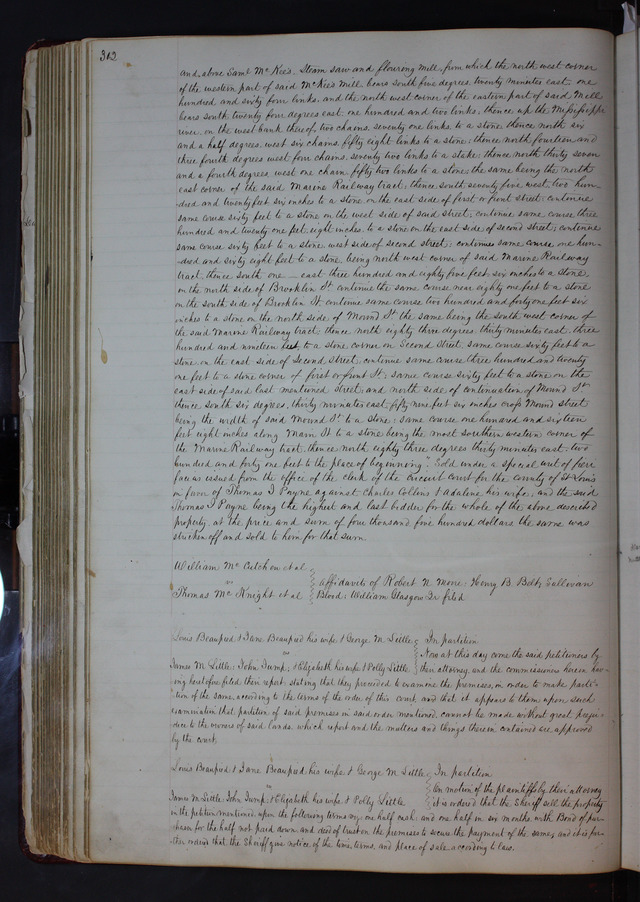 312
and above Saml McKee's Steam saw and flouring mill, from which the north west corner
of the western part of said McKee's Mill bears south five degrees, twenty minutes east, one
hundred and sixty four links, and the north west corner of the eastern part of said Mill
bears south twenty four degrees east one hundred and two links; thence up the Mississippi
river on the west bank thereof two chains, seventy one links to a stone thence north six
and a half degrees west six chains fifty eight links to a stone; thence north fourteen and
three fourth degrees west four chains, seventy two links to a stake; thence north thirty seven
and a fourth degrees, west one chain fifty two links to a stone; the same being the north
east corner of the said Marine Railway tract; thence south seventy five west two hun-
dred and twenty feet six inches to a stone on the east side of first or front street; continue
same course sixty feet to a stone on the west side of said street; continue same course three
hundred and twenty one feet eight inches to a stone on the east side of second street; continue
same course sixty feet to a stone west side of second street; continues same course one hun-
-dred and sixty eight feet to a stone being north west corner of said Marine Railway
tract, thence south one — east three hundred and eighty five feet six inches to a stone,
on the north side of Brooklin St continue the same course near eighty one feet to a stone
on the south side of Brooklin St continue same course two hundred and forty one feet six
inches to a stone on the north side of Mound St the same being the south west corner of
the said Marine Railway tract; thence north eighty three degrees, thirty minutes east, three
hundred and nineteen feet to a stone corner on Second Street, same course sixty feet to a
stone on the east side of second street, continue same course three hundred and twenty
one feet to a stone corner of first or front St: same course sixty feet to a stone on the
east side of said last mentioned street, and north side of continuation of Mound St
thence south six degrees, thirty minutes east, fifty nine feet six inches cross Mound street
being the width of said Mound St to a stone; same course one hundred and sixteen
feet eight inches along Main St to a stone being the most southern western corner of
the Marine Railway tract, thence north eighty three degrees thirty minutes east, two
hundred and forty one feet to the place of beginning; Sold under a special writ of fieri
facias issued from the office of the clerk of the circuit court for the county of St Louis
in favor of Thomas J Payne against Charles Collins & Adaline his wife, and the said
Thomas J Payne being the highest and last bidder for the whole of the above described
property at the price and sum of four thousand five hundred dollars the same was
stricken off and sold to him for that sum
William McCutchen et al
vs
Thomas McKnight et al
Affidavits of Robert N. Moore: Henry B. Belt, Sullivan
Blood: William Glasgow Jr filed
Louis Beaupied & Jane Beaupied his wife & George M. Little
vs
James M. Little: John Jump; & Elizabeth his wife & Polly Little
In partition
Now at this day come the said petitioners by
their attorney, and the commissioners herein hav-
ing heretofore filed their report, stating that they proceeded to examine the premises, in order to make parti-
-tion of the same according to the terms of the order of this court, and that it appears to them upon such
examination that partition of said premises in said order mentioned, cannot be made without great preju-
dice to the owners of said lands. which report and the matters and things therein contained are approved
by the court.
Louis Beaupied & Jane Beaupied his wife & George M. Little
vs
James M. Little: John Jump; & Elizabeth his wife & Polly Little
In partition
On motion of the plaintiffs by their attorney
it is ordered that the Sheriff sell the property
in the petition mentioned upon the following terms viz: one half cash, and one half in six months with Bond of pur-
chaser for the half not paid down and deed of trust on the premises to secure the payment of the same, and it is fur-
-ther ordered that the Sheriff give notice of the time, terms, and place of sale according to law.